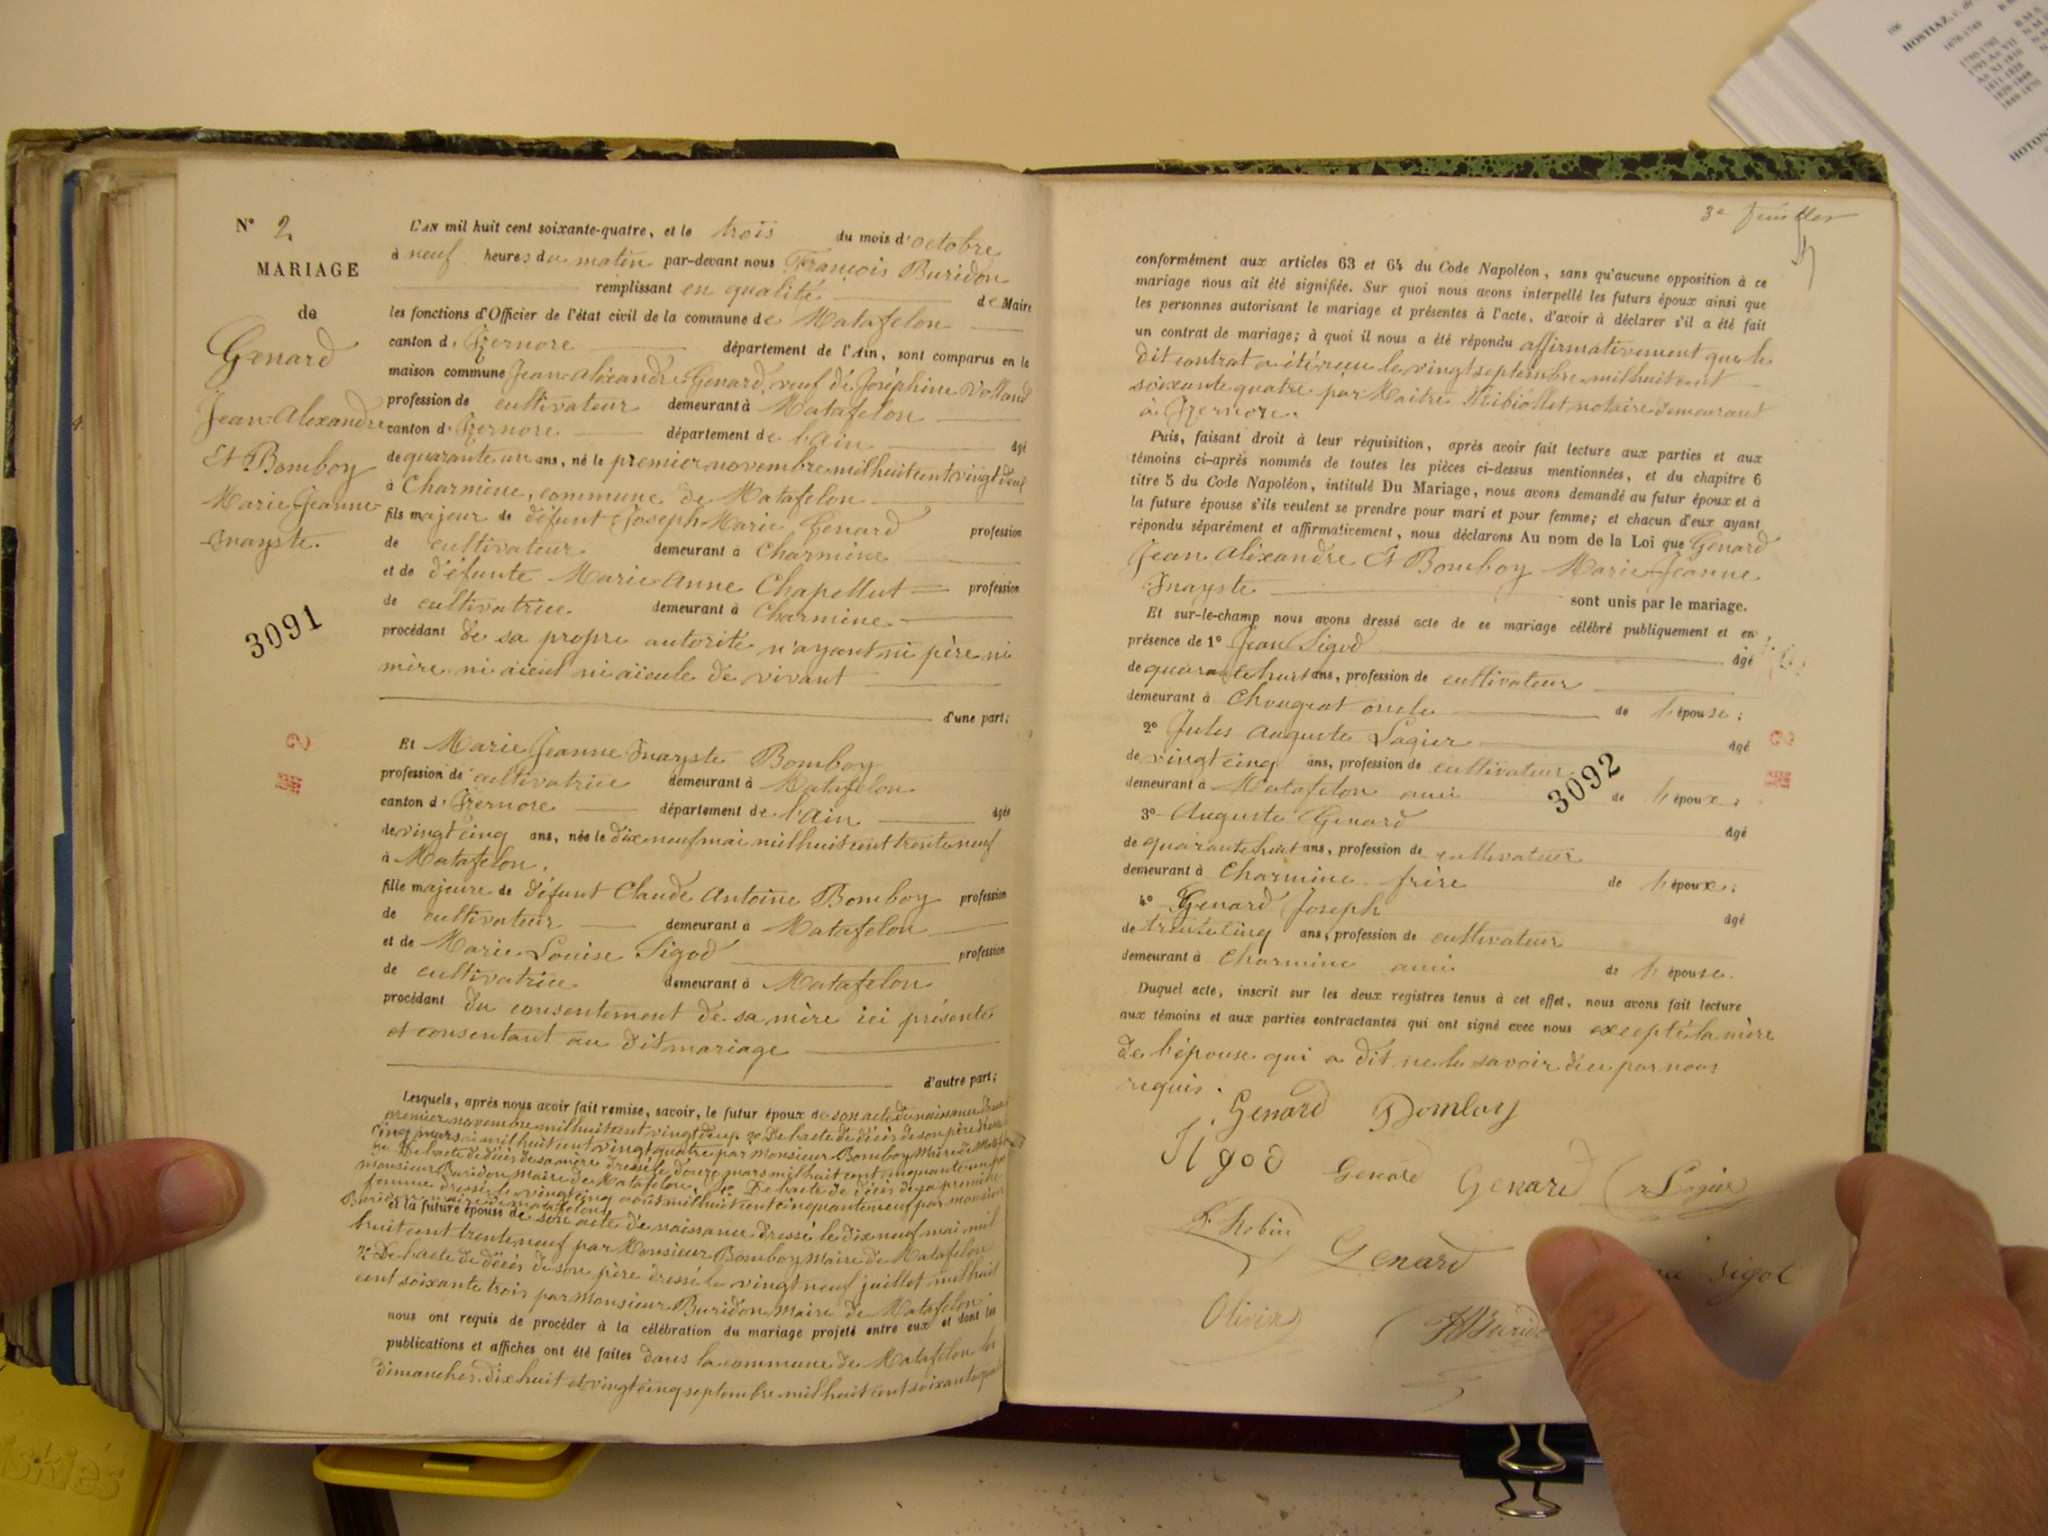 N° 2
MARIAGE
de
Genard
Jean Alexandre
Et Bomboy
Marie Jeanne
3091
L'AN mil huit cent soixante-quatre, et le trois du mois d'octobre
à neuf heures du matin par-devant nous François Buridon
remplissant en qualité de Maire
les fonctions d'Officier de l'état civil de la commune de Matafelon
canton d'Izernore département de l'Ain, sont comparus en la
maison commune Jean Alexandre Genard, veuf de Joséphine Volland
profession de cultivateur demeurant à Matafelon
canton d'Izernore département de l'Ain âgé
de quarante un ans, né le premier novembre mil huit cent vingt deux
à Charmine, commune de Matafelon
fils majeur de défunt Joseph Marie Genard profession
de cultivateur demeurant à Charmine
et de défunte Marie Anne Chapellut profession
de cultivatrice demeurant à Charmine
procédant de sa propre autorité n'ayant ni père ni
mère ni aieul ni aïeule de vivant
d'une part;
Et Marie Jeanne Bomboy
profession de cultivatrice demeurant à Matafelon
canton d'Izernore département de l'Ain âgée
de vingt cinq ans, née le dix neuf mai mil huit cent trente neuf
à Matafelon.
fille majeure de défunt Claude Antoine Bomboy profession
de cultivateur demeurant à Matafelon
et de Marie Louise Sigod profession
de cultivatrice demeurant à Matafelon
procédant du consentement de sa mère ici présente
et consentant au dit mariage
d'autre part;
Lesquels, après nous avoir fait remise, savoir, le futur époux de son acte de naissance dressé
premier novembre mil huit cent vingt deux. 2° De l'acte de décès de son père dressé
cinq mars mil huit cent vingt quatre par monsieur Bomboy Maire de
De l'acte de décès de sa mère dressé le douze mars mil huit cent cinquante un par
monsieur Buridon maire de Matafelon. De l'acte de décès de sa première
femme dressé le vingt cinq août mil huit cent cinquante neuf par monsieur
Buridon maire de Matafelon
et la future épouse de son acte de naissance dressé le dix neuf mai mil
huit cent trente neuf par Monsieur Bomboy Maire de Matafelon
2° De l'acte de décès de son père dressé le vingt neuf juillet mil huit
cent soixante trois par Monsieur Buridon maire de Matafelon
nous ont requis de procéder à la célébration du mariage projeté entre eux et dont les
publications et affiches ont été faites dans la commune de Matafelon les
dimanches dix huit et vingt cinq septembre mil huit cent soixante
2
3e feuillet
conformément aux articles 63 et 64 du Code Napoléon, sans qu'aucune opposition à ce
mariage nous ait été signifiée. Sur quoi nous avons interpellé les futurs époux ainsi que
les personnes autorisant le mariage et présentes à l'acte, d'avoir à déclarer s'il a été fait
un contrat de mariage; à quoi il nous a été répondu affirmativement que le
dit contrat a été reçu le vingt septembre mil huit cent
soixante quatre par Maître notaire demeurant
à Izernore.
Puis, faisant droit à leur réquisition, après avoir fait lecture aux parties et aux
témoins ci-après nommés de toutes les pièces ci-dessus mentionnées, et du chapitre 6
titre 5 du Code Napoléon, intitulé Du Mariage, nous avons demandé au futur époux et à
la future épouse s'ils veulent se prendre pour mari et pour femme; et chacun d'eux ayant
répondu séparément et affirmativement, nous déclarons Au nom de la Loi que Genard
Jean Alexandre Et Bomboy Marie Jeanne
sont unis par le mariage.
Et sur-le-champ nous avons dressé acte de ce mariage célébré publiquement et en
présence de 1° Jean Sigod âgé
de quarante huit ans, profession de cultivateur
demeurant à Chougeat oncle de l'épouse;
2° Jules Auguste Lagier âgé
de vingt cinq ans, profession de cultivateur
demeurant à Matafelon ami de l'époux;
3092
3° Auguste Genard âgé
de quarante huit ans, profession de cultivateur
demeurant à Charmine frère de l'époux;
4° Genard Joseph âgé
de trente cinq ans, profession de cultivateur
demeurant à Charmine ami de l'épouse.
Duquel acte, inscrit sur les deux registres tenus à cet effet, nous avons fait lecture
aux témoins et aux parties contractantes qui ont signé avec nous excepté la mère
de l'épouse qui a dit ne le savoir de ce par nous
requis.
Genard Bomboy
Sigod Genard Genard Lagier
Robin Genard Sigod
Olivier
2
HOSTIAZ